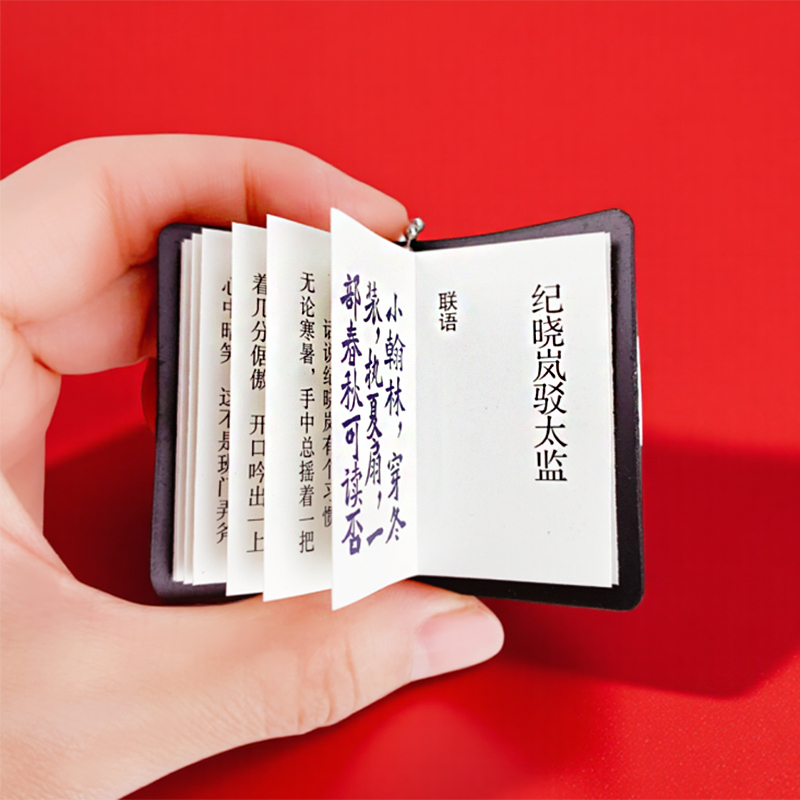 纪晓岚驳太监
联语
小翰林，穿冬
装，执夏扇，一
部春秋可读否
话说纪晓岚有个习惯
无论寒暑，手中总摇着一把
着几分倨傲 开口吟出一上
心中暗笑 这不是班门弄斧